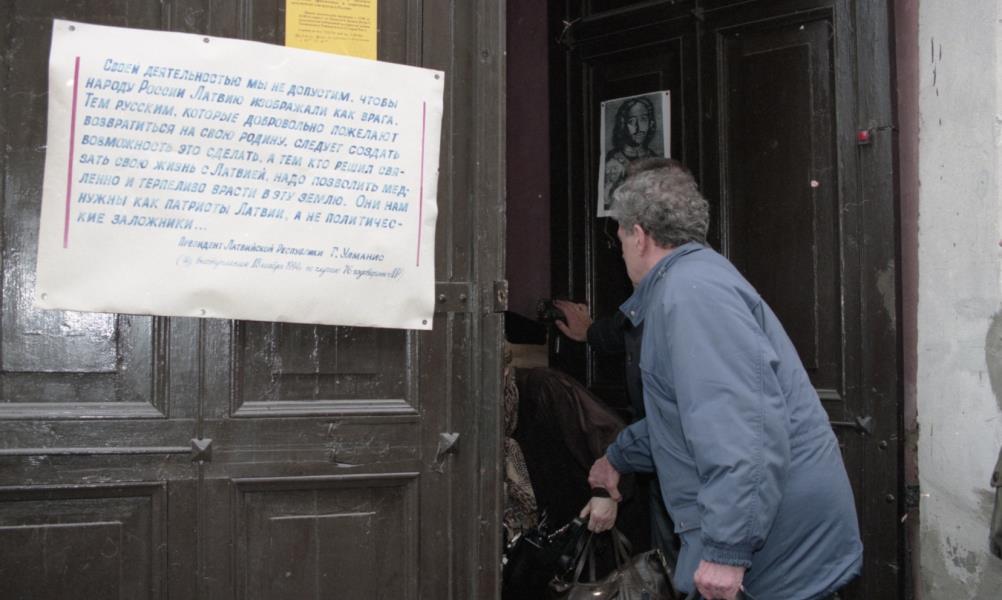 Своей деятельностью мы не допустим, чтобы
народу России Латвию изображали как врага.
Тем русским, которые добровольно пожелают
возвратиться на свою родину, следует создать
возможность это сделать, а тем кто решил свя-
зать свою жизнь с Латвией, надо позволить мед-
ленно и терпеливо врасти в эту землю. Они нам
нужны как патриоты Латвии, а не политичес-
кие заложники...
Президент Латвийской Республики Г. Улманис
(Из выступления 18 ноября 1994 по случаю 76 годовщины ЛР)